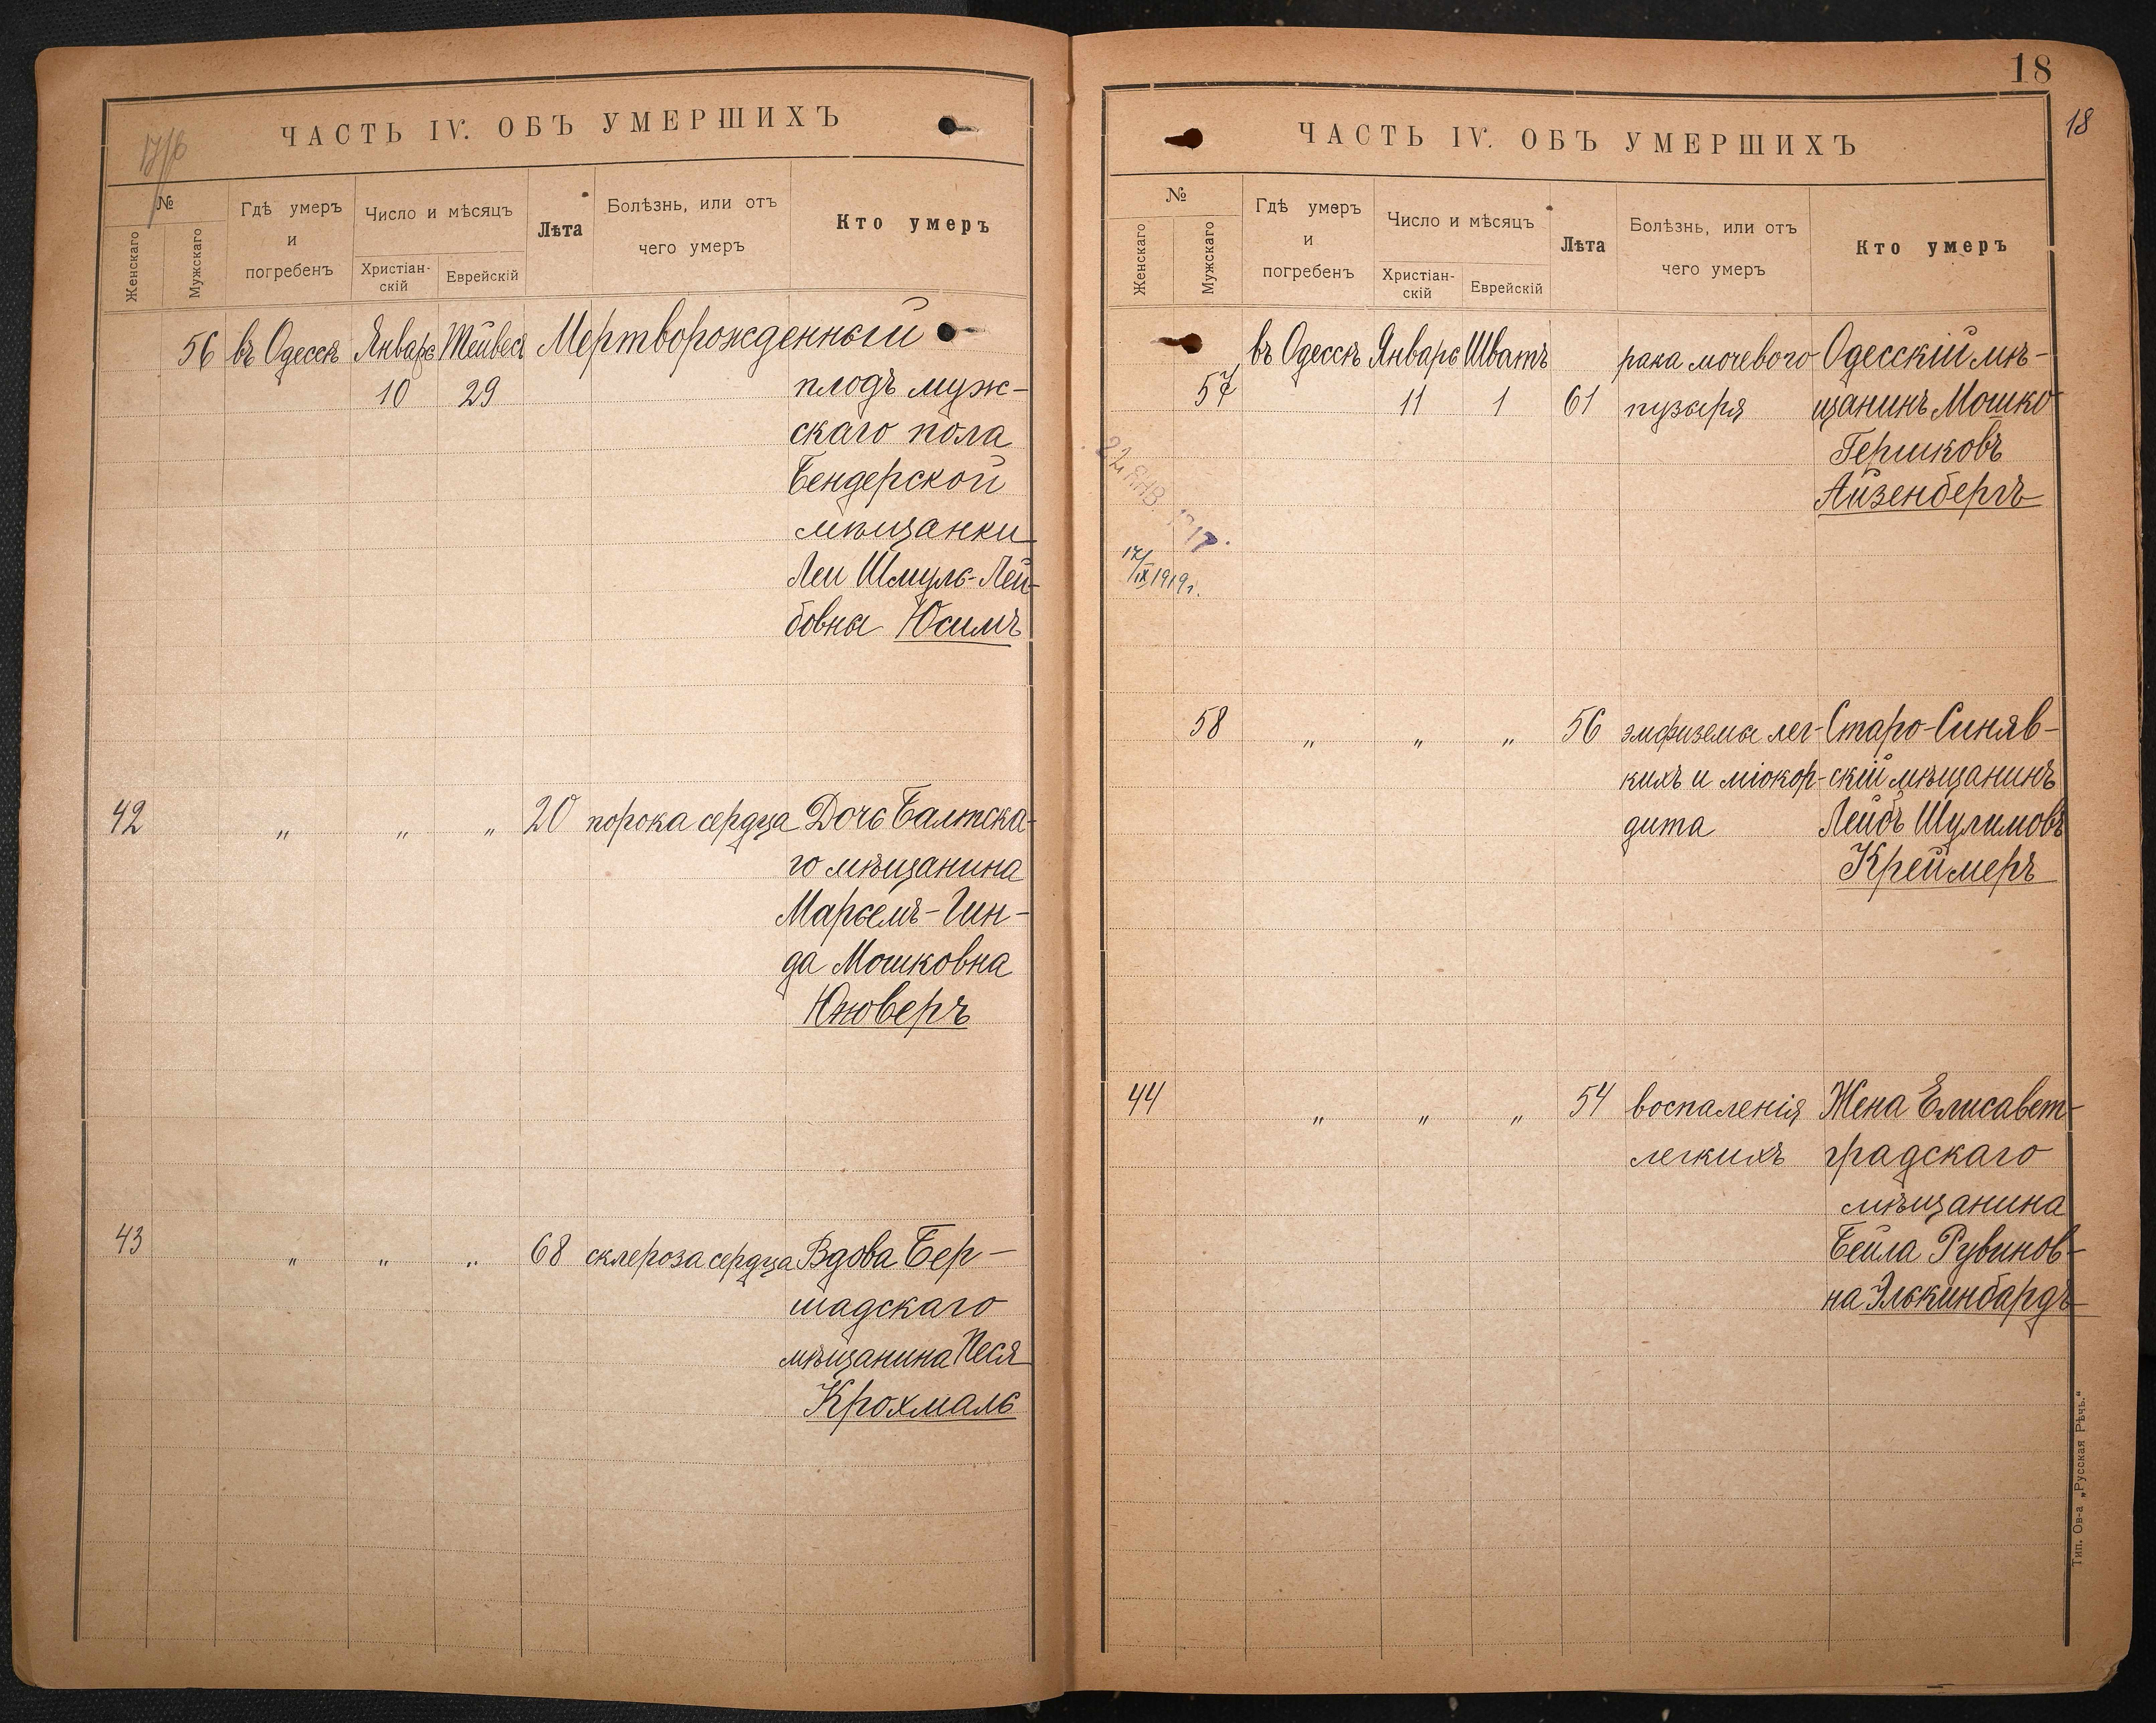 ЧАСТЬ IV. ОБЪ УМЕРШИХЪ
17/6
№
Женскаго
Мужскаго
Гдѣ умеръ
и
погребенъ
Число и мѣсяцъ
Христіан-
скій
Еврейскій
Лѣта
Болѣзнь, или отъ
чего умеръ
Кто умеръ
56 въ Одессѣ Январь Тейвеса Мертворожденный
10 29 плодъ муж-
скаго пола
Бендерской
мѣщанки
Леи Шмуль-Лей-
бовны Юсимъ
42 " " " 20 порока сердца Дочь Балтска-
го мѣщанина
Марьемъ-Гин-
да Мошковна
Юноверъ
43 " " " 68 склероза сердца Вдова Бер-
шадскаго
мѣщанина Песя
Крохмаль
18
18
ЧАСТЬ IV. ОБЪ УМЕРШИХЪ
№
Женскаго
Мужскаго
Гдѣ умеръ
и
погребенъ
Число и мѣсяцъ
Христіан-
скій
Еврейскій
Лѣта
Болѣзнь, или отъ
чего умеръ
Кто умеръ
въ Одессѣ Январь Шватъ рака мочевого Одесскій мѣ-
57 11 1 61 пузыря щанинъ Мошко
Гершковъ
Айзенбергъ
22 ЯНВ. 1917.
17/IX 1919г.
58 " " " 56 эмфиземы лег- Старо-Синяв-
кихъ и міокор- скій мѣщанинъ
дита Лейбъ Шулимовъ
Креймеръ
44 " " " 54 воспаленія Жена Елисавет-
легкихъ градскаго
мѣщанина
Бейла Рувинов-
на Элькинбардъ
Тип. Ов-а „Русская Рѣчь."